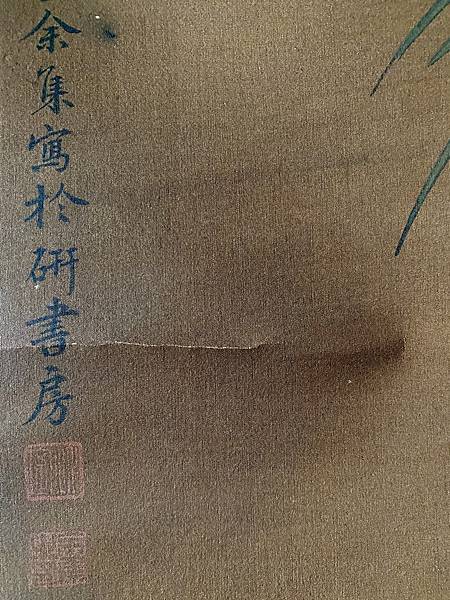 余集寫於研書房